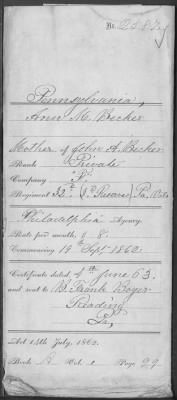 Pennsylvania,
Ann M. Becker
Mother of John A. Becker
Rank Private
Company
Regiment 32d Pa. Vols
Philadelphia Agency.
Rate per month, $8.
Commencing 19th Sept 1862.
Certificate dated 4th June 63.
and sent to B. Frank Boyer
Reading
Pa,
Act 14th July, 1862.
Book Vol. Page 29